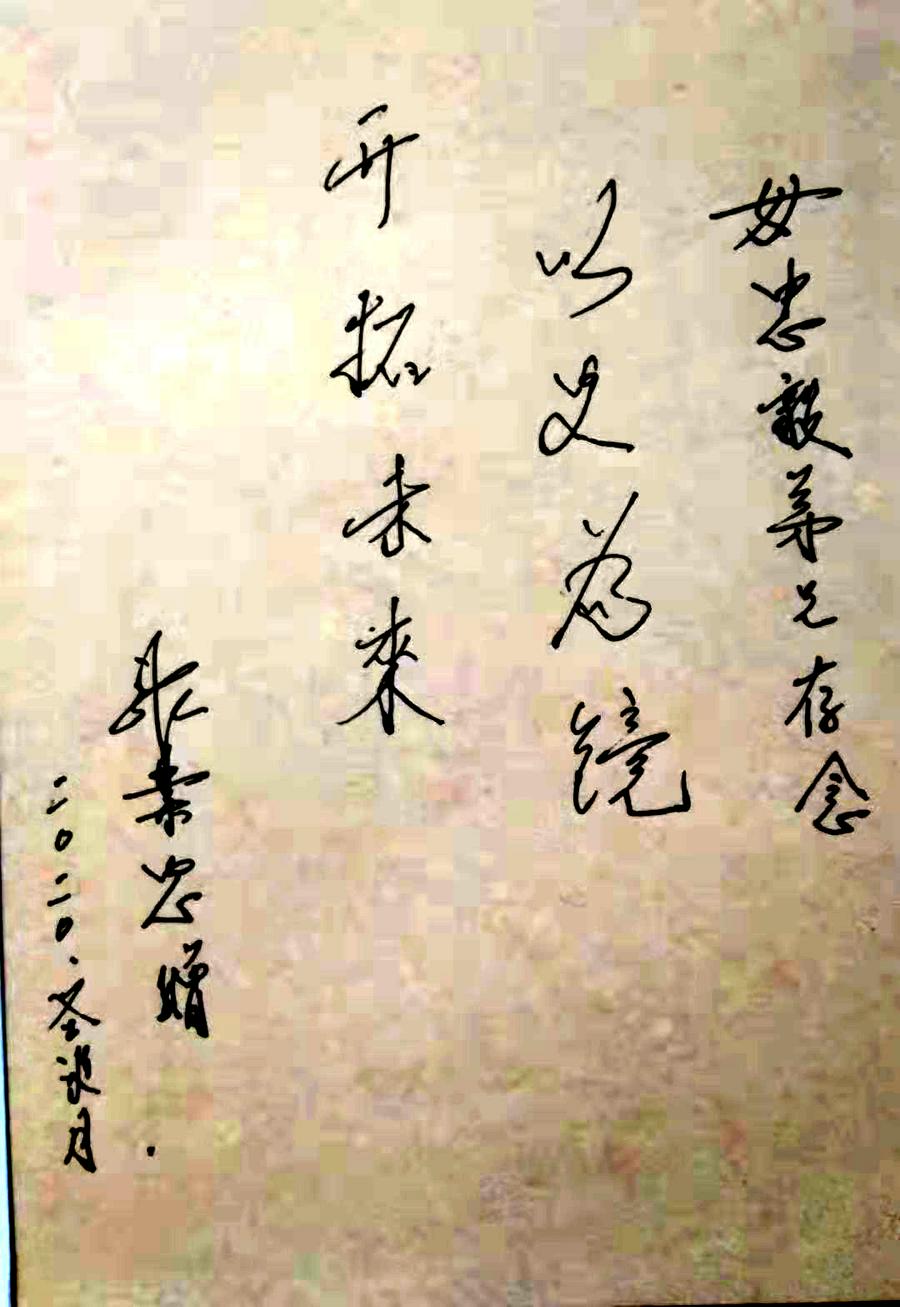 毋忠毅弟兄存念
以史为镜
开拓未来
张景忠赠
二〇二〇.圣诞月